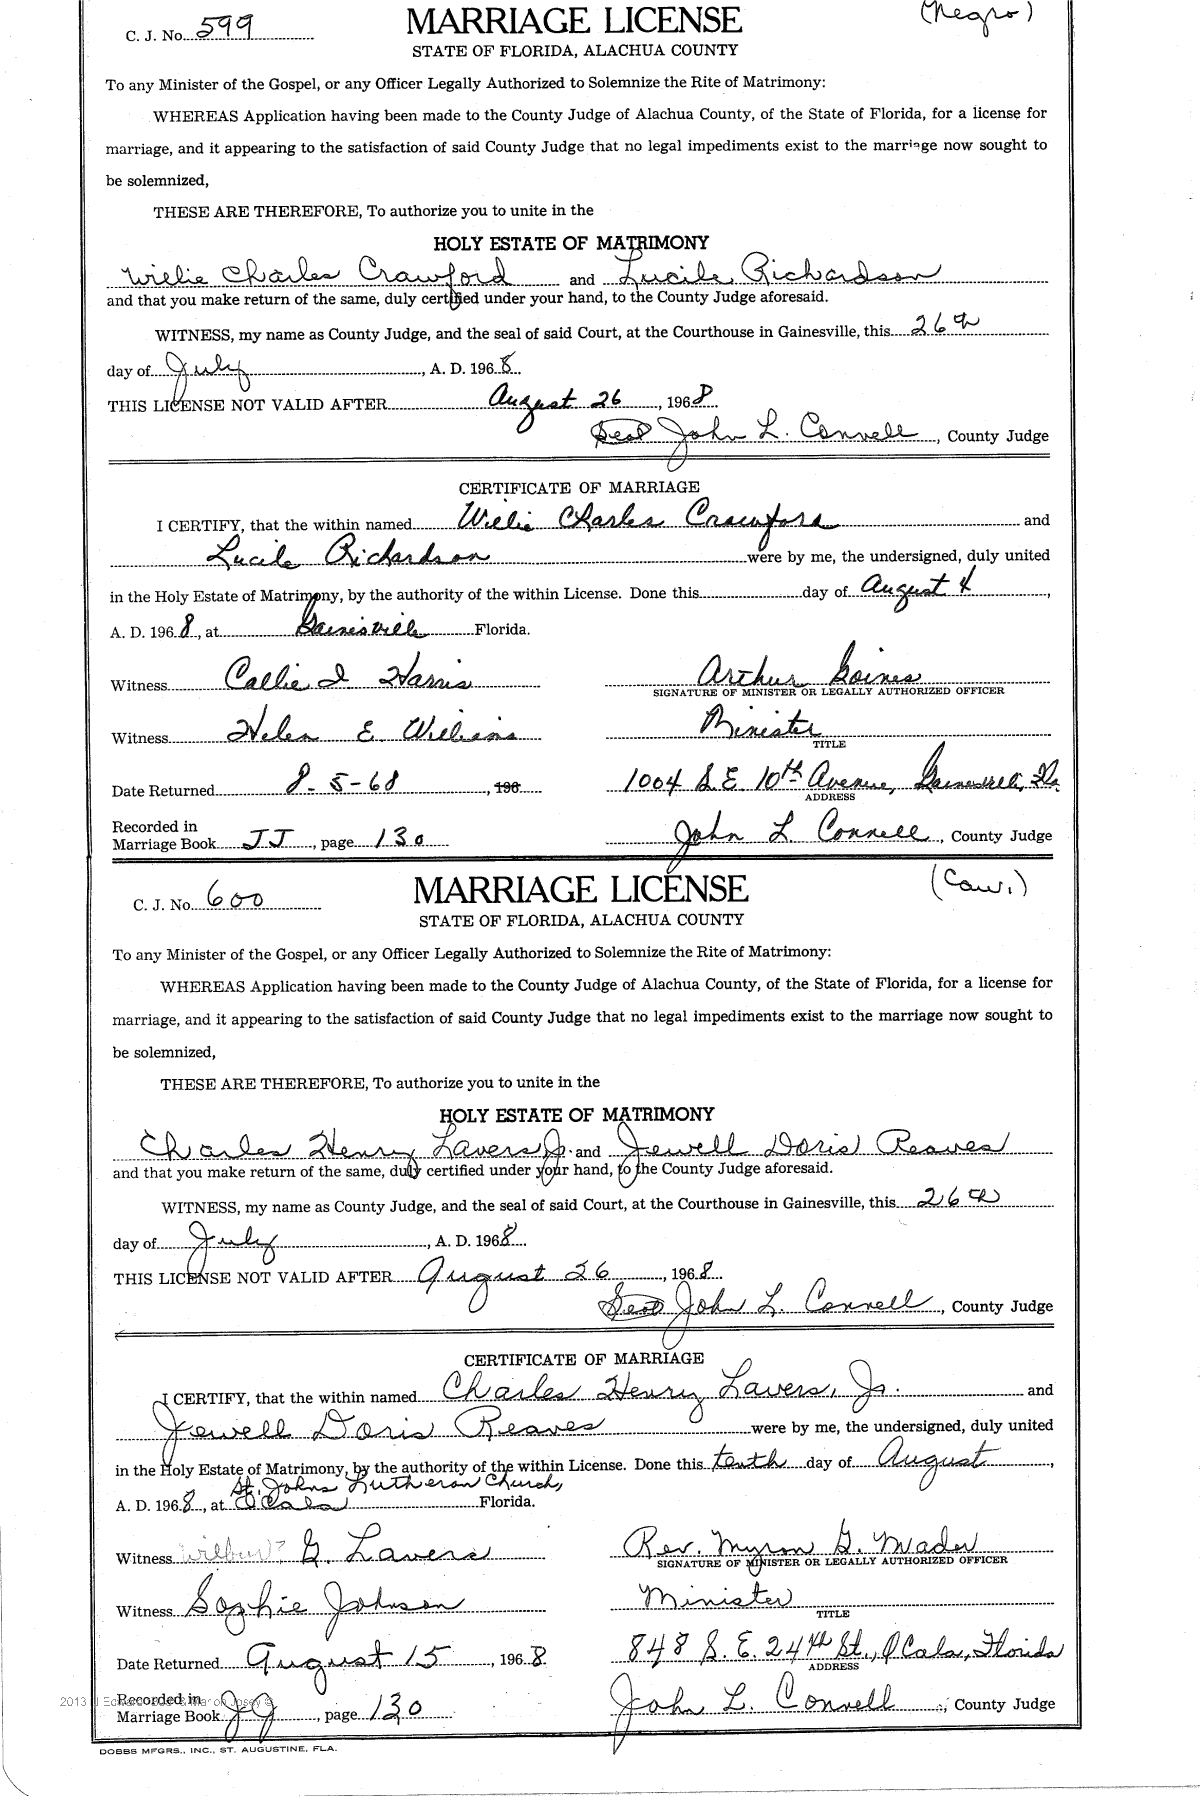 C. J. No. 599 MARRIAGE LICENSE (Negro)
STATE OF FLORIDA, ALACHUA COUNTY
To any Minister of the Gospel, or any Officer Legally Authorized to Solemnize the Rite of Matrimony:
WHEREAS Application having been made to the County Judge of Alachua County, of the State of Florida, for a license for
marriage, and it appearing to the satisfaction of said County Judge that no legal impediments exist to the marriage now sought to
be solemnized,
THESE ARE THEREFORE, To authorize you to unite in the
HOLY ESTATE OF MATRIMONY
Willie Charles Crawford and Lucile Richardson
and that you make return of the same, duly certified under your hand, to the County Judge aforesaid.
WITNESS, my name as County Judge, and the seal of said Court, at the Courthouse in Gainesville, this 26th
day of July, A. D. 1968.
THIS LICENSE NOT VALID AFTER August 26, 1968
Seal John L. Connell, County Judge
CERTIFICATE OF MARRIAGE
I CERTIFY, that the within named Willie Charles Crawford and
Lucile Richardson were by me, the undersigned, duly united
in the Holy Estate of Matrimony, by the authority of the within License. Done this day of August 4,
A. D. 1968, at Gainesville Florida.
Witness Callie I Harris Arthur Goines
SIGNATURE OF MINISTER OR LEGALLY AUTHORIZED OFFICER
Witness Helen E. Williams Minister
TITLE
Date Returned 8-5-68, 196 1004 S.E. 10th Avenue, Gainesville, Fla.
ADDRESS
Recorded in
Marriage Book JJ, page 130 John L. Connell, County Judge
C. J. No. 600 MARRIAGE LICENSE (Cau.)
STATE OF FLORIDA, ALACHUA COUNTY
To any Minister of the Gospel, or any Officer Legally Authorized to Solemnize the Rite of Matrimony:
WHEREAS Application having been made to the County Judge of Alachua County, of the State of Florida, for a license for
marriage, and it appearing to the satisfaction of said County Judge that no legal impediments exist to the marriage now sought to
be solemnized,
THESE ARE THEREFORE, To authorize you to unite in the
HOLY ESTATE OF MATRIMONY
Charles Henry Lavers Jr. and Jewell Doris Reaves
and that you make return of the same, duly certified under your hand, to the County Judge aforesaid.
WITNESS, my name as County Judge, and the seal of said Court, at the Courthouse in Gainesville, this 26th
day of July, A. D. 1968
THIS LICENSE NOT VALID AFTER August 26, 1968.
Seal John L. Connell, County Judge
CERTIFICATE OF MARRIAGE
I CERTIFY, that the within named Charles Henry Lavers, Jr. and
Jewell Doris Reaves were by me, the undersigned, duly united
in the Holy Estate of Matrimony, by the authority of the within License. Done this tenth day of August,
St. Johns Lutheran Church,
A. D. 1968, at Ocala Florida.
Witness Wilbur? G. Lavers Rev. Myron G. Mader
SIGNATURE OF MINISTER OR LEGALLY AUTHORIZED OFFICER
Witness Sophie Johnson Minister
TITLE
Date Returned August 15, 1968 848 S. E. 24th St., Ocala, Florida
ADDRESS
Recorded in
Marriage Book JJ, page 130 John L. Connell, County Judge
DOBBS MFGRS., INC., ST. AUGUSTINE, FLA.